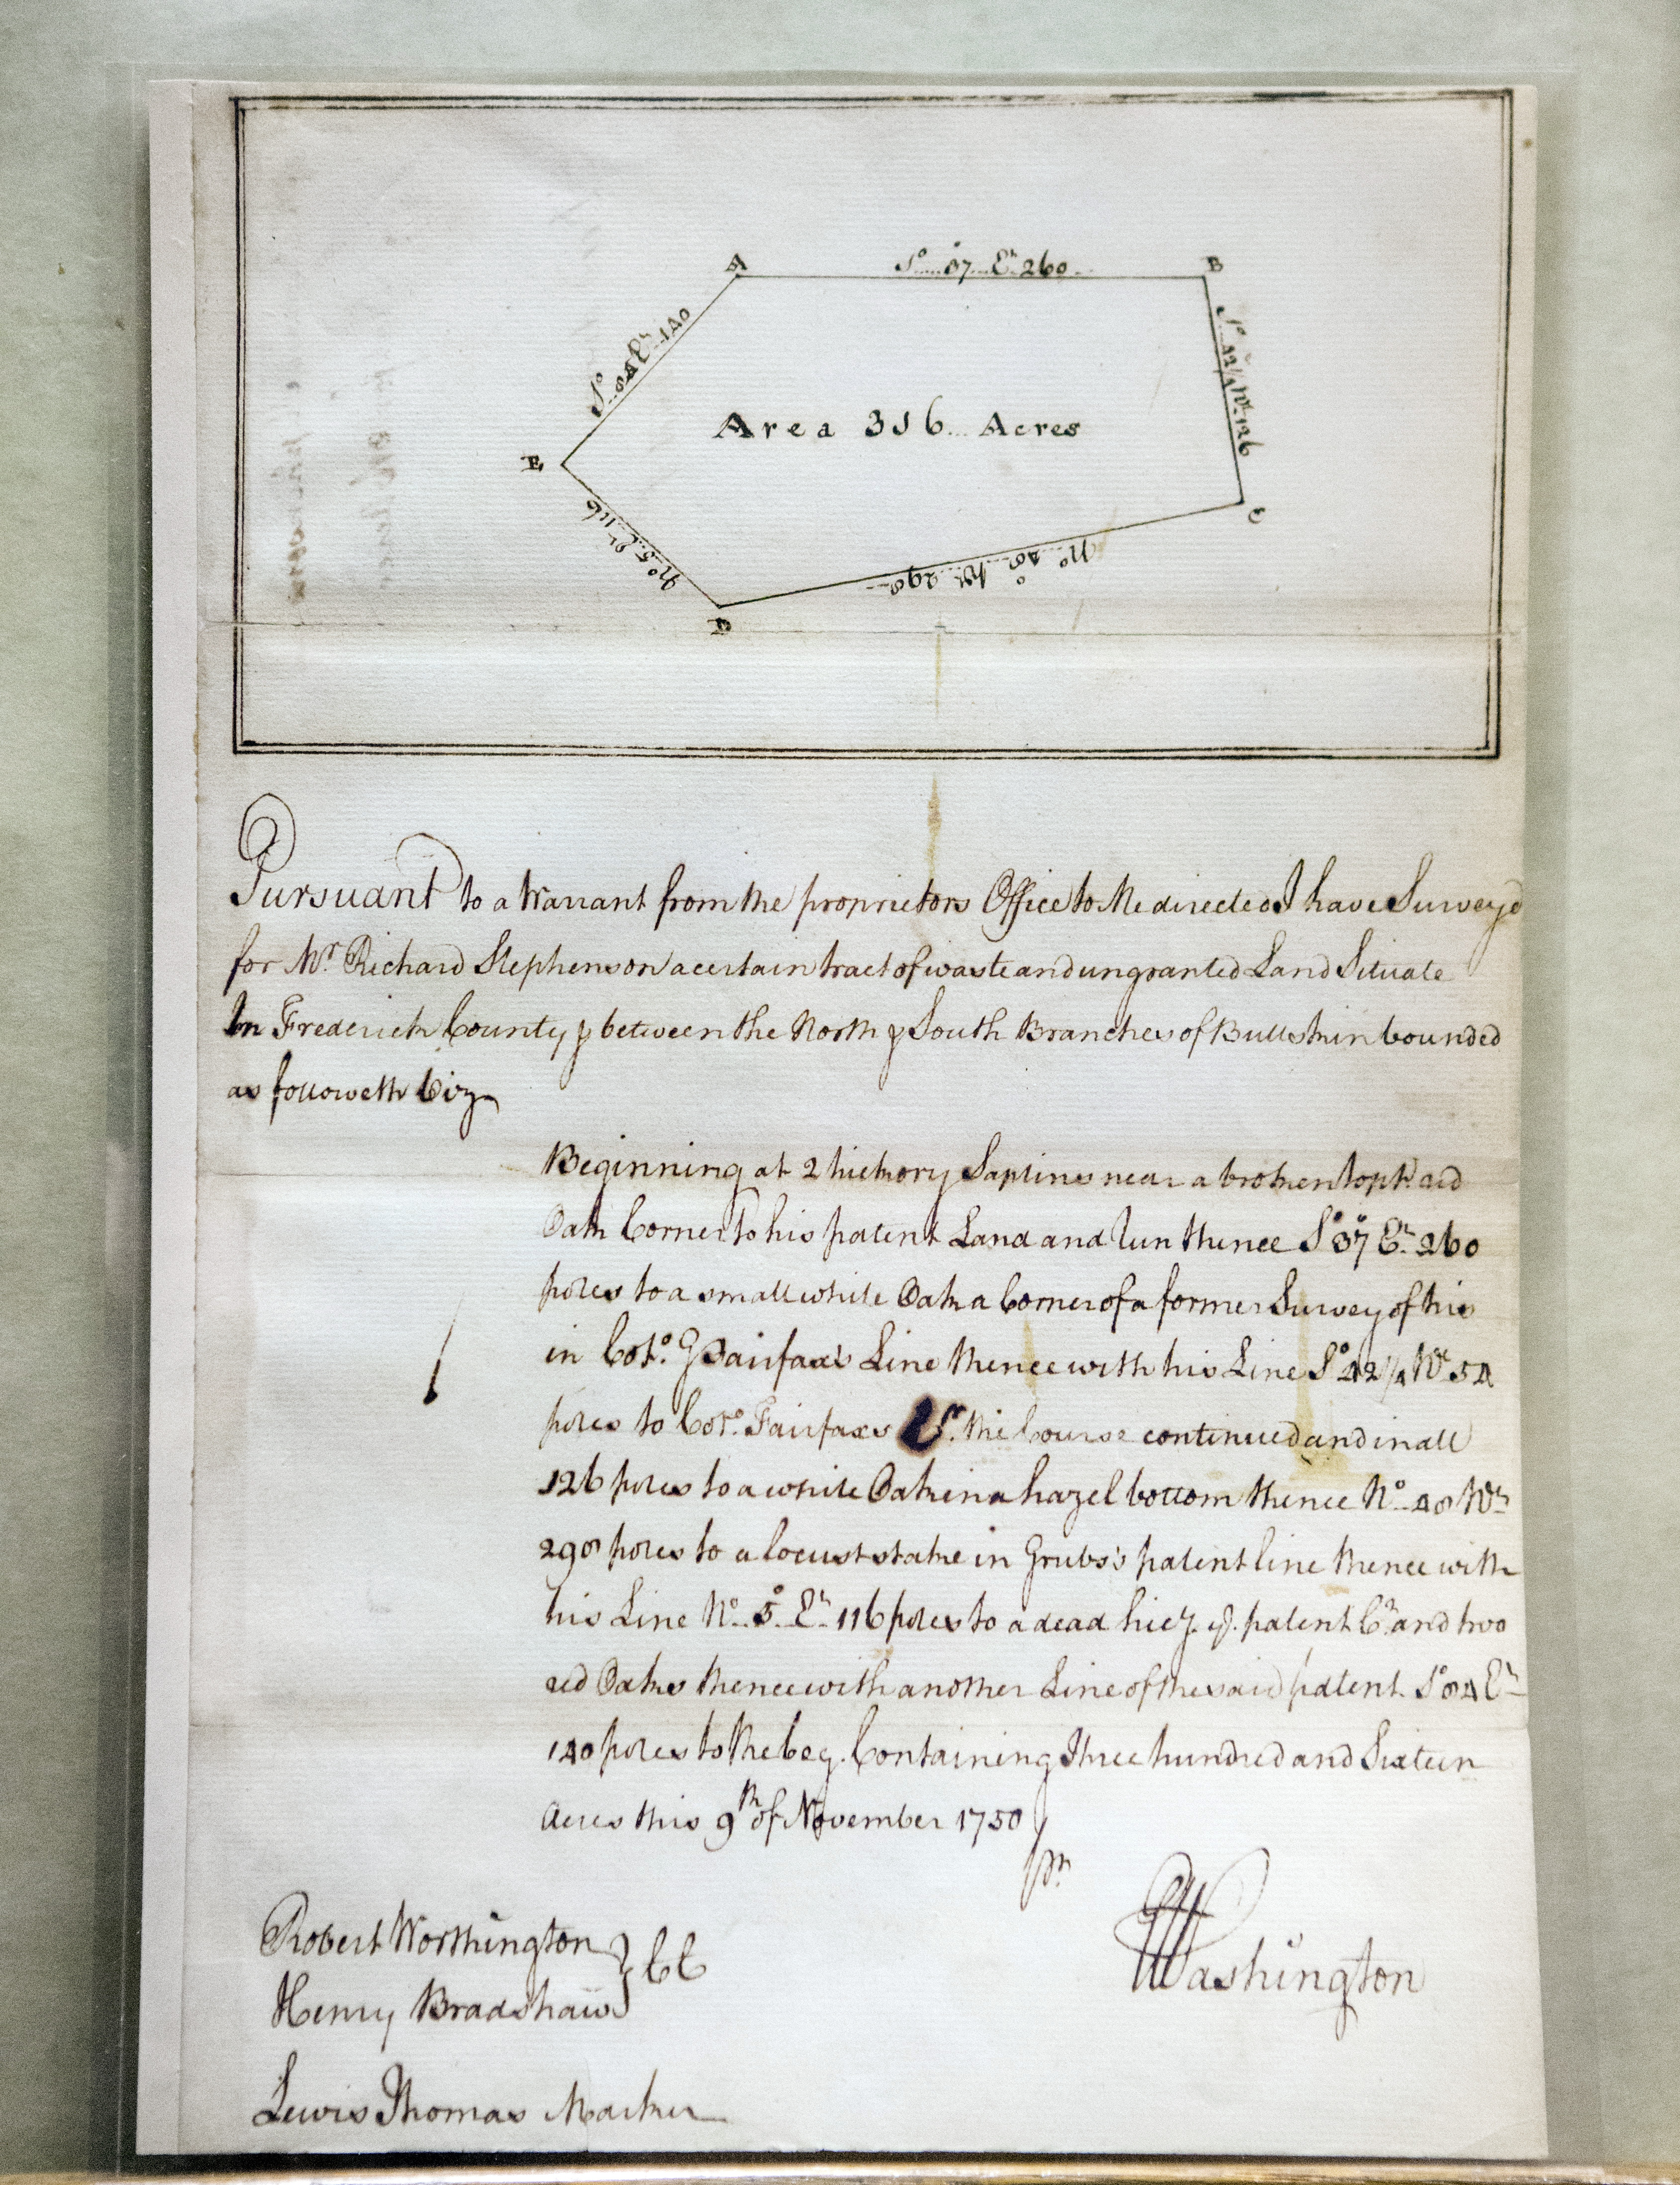 A
So 37 Et 260
B
So 42¼ Wt 126
C
No 48 Wt 298
D
No 5 Et 116
E
So 84 Et 140
Area 316 Acres
Pursuant to a Warrant from the proprietors Office to Me directed I have Survey'd
for Mr. Richard Stephenson a certain tract of waste and ungranted Land Situate
In Frederick County & between the North & South Branches of Bullskin bounded
as followeth Viz
Beginning at 2 hickory Saplins near a broken topt. red
Oak Corner to his patent Land and Run thence So 37 Et 260
poles to a small white Oak a Corner of a former Survey of his
in Colo. G Fairfax's Line thence with his Line So 42¼ Wt 54
poles to Colo. Fairfaxs Cr. the Course continued and in all
126 poles to a white Oak in a hazel bottom thence No 48 Wt
298 poles to a locust stake in Grubs's patent line thence with
his Line No 5 Et 116 poles to a dead hicy. patent Cr and two
red Oaks thence with another Line of the said patent So 84 Et
140 poles to the beg. Containing Three hundred and Sixteen
Acres this 9th of November 1750
pr
Robert Worthington
Henry Bradshaw } CC
GWashington
Lewis Thomas Marker